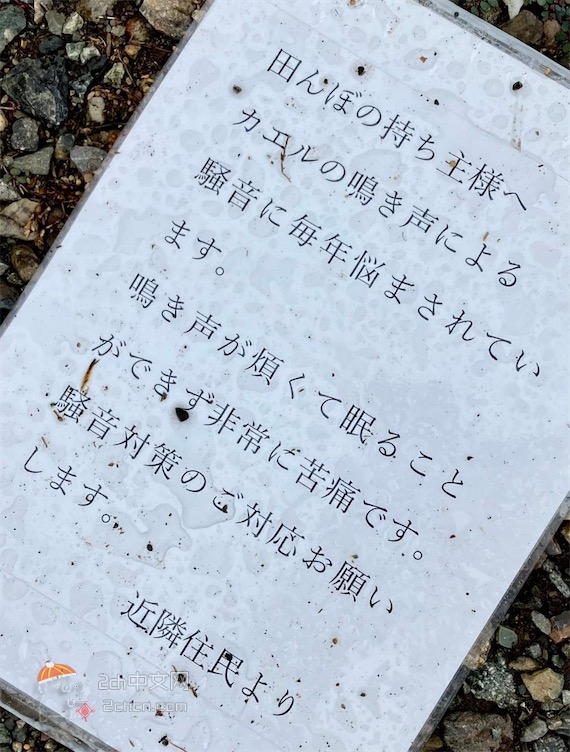 田んぼの持ち主様へ
カエルの鳴き声による
騒音に毎年悩まされてい
ます。
鳴き声が煩くて眠ること
ができず非常に苦痛です。
騒音対策のご対応お願い
します。
近隣住民より
2ch中文网
2chcn.com